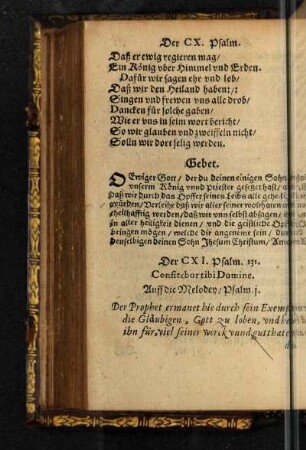 Der CX. Psalm.
Daß er ewig regieren mag/
Ein König vber Himmel vnd Erden.
Dafür wir sagen ehr vnd lob/
Daß wir den Heiland haben/:
Singen vnd frewen vns alle drob/
Dancken für solche gaben/
Wie er vns in seim wort bericht/
So wir glauben vnd zweiffeln nicht/
Solln wir dort selig werden.
Gebet.
O Ewiger Gott/ der du deinen einigen Sohn
vnserm König vnnd Priester gesetzt hast/
Daß wir durch das Opffer seines Leibs alle
würden/ Verleihe daß wir aller seiner wolthaten
theilhafftig werden/ daß wir vns selbst absagen/
zu aller heiligkeit dienen/ vnd die geistliche Opffer
bringen mögen/ welche dir angeneme sein/ durch
denselbigen deinen Sohn Jhesum Christum/ Amen.
Der CXI. Psalm. 131.
Confitebor tibi Domine.
Auff die Melodey/ Psalm. j.
Der Prophet ermanet hie durch sein Exempel
die Gläubigen, Gott zu loben, vnd
ihn für, viel seiner werck vnnd gutthat